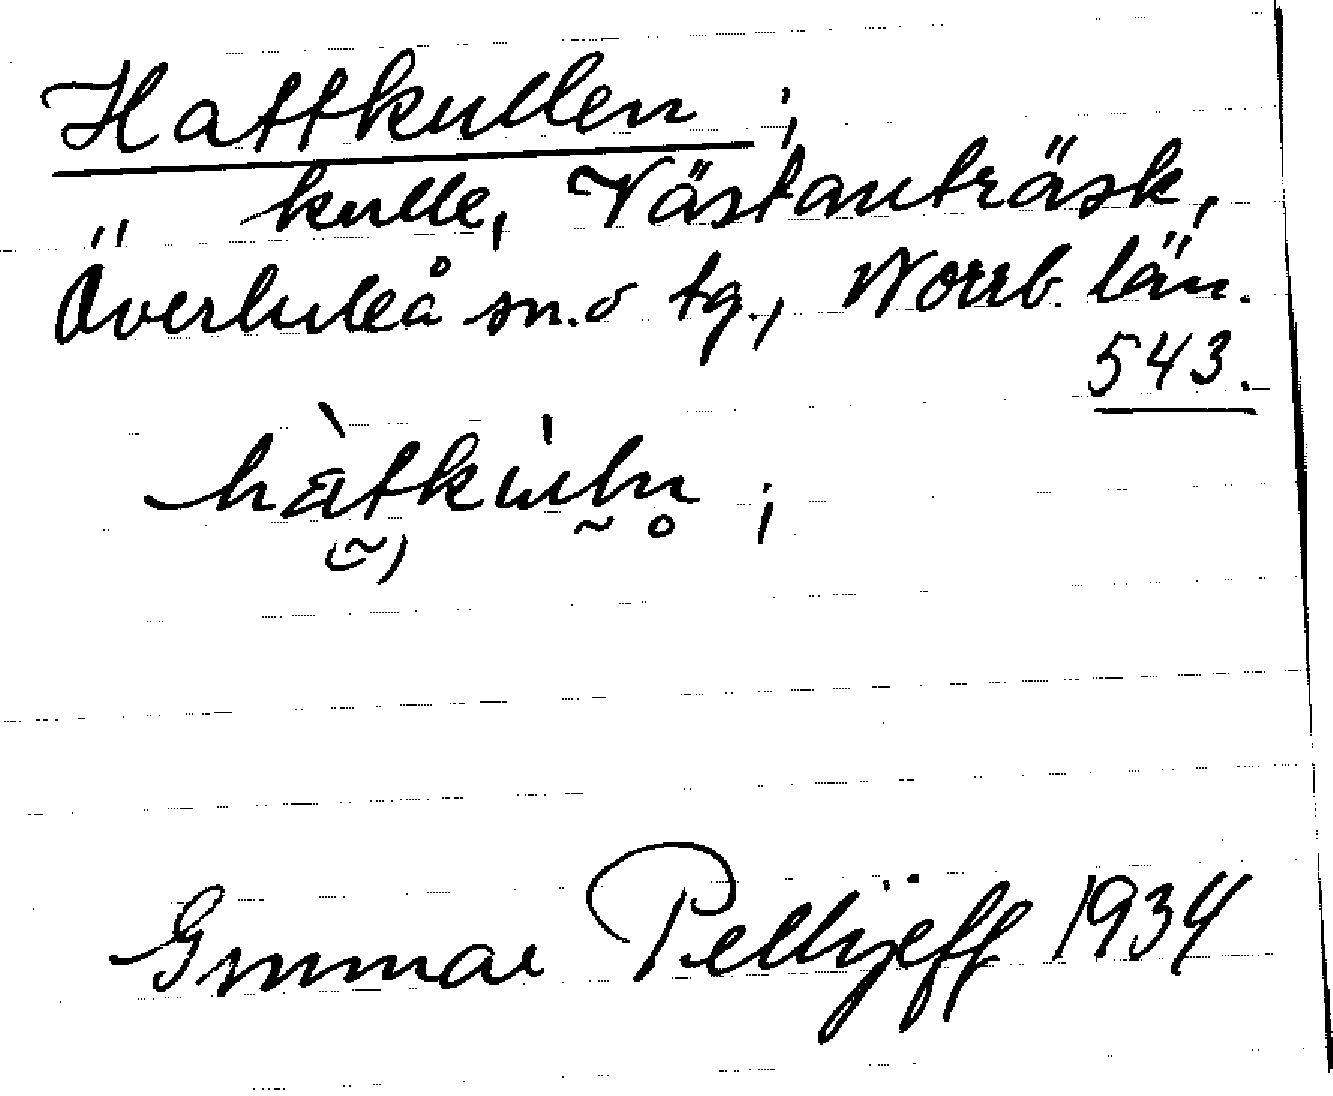 Hattkullen ;
kulle, Västanträsk,
Överluleå sn. o tg., Norrb. län.
543.
hàtkùln̥ ;
Gunnar Pellijeff 1934